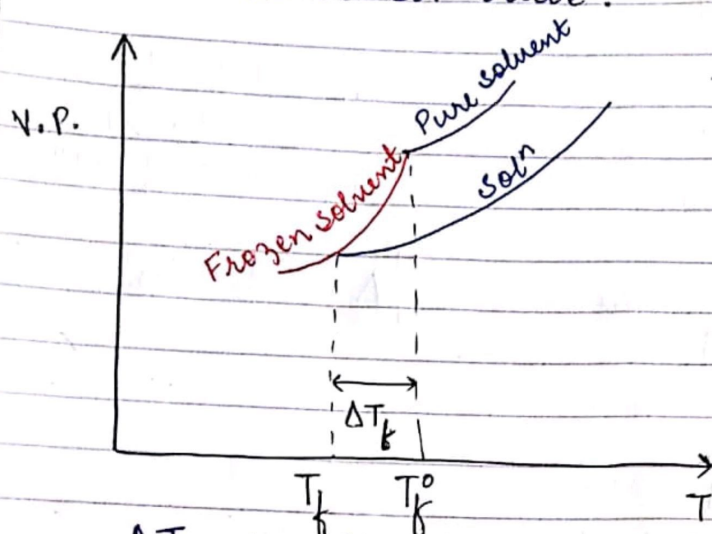 V.P.
Pure solvent
Frozen solvent
Solⁿ
ΔT_f
T_f
T_f°
T
ΔT